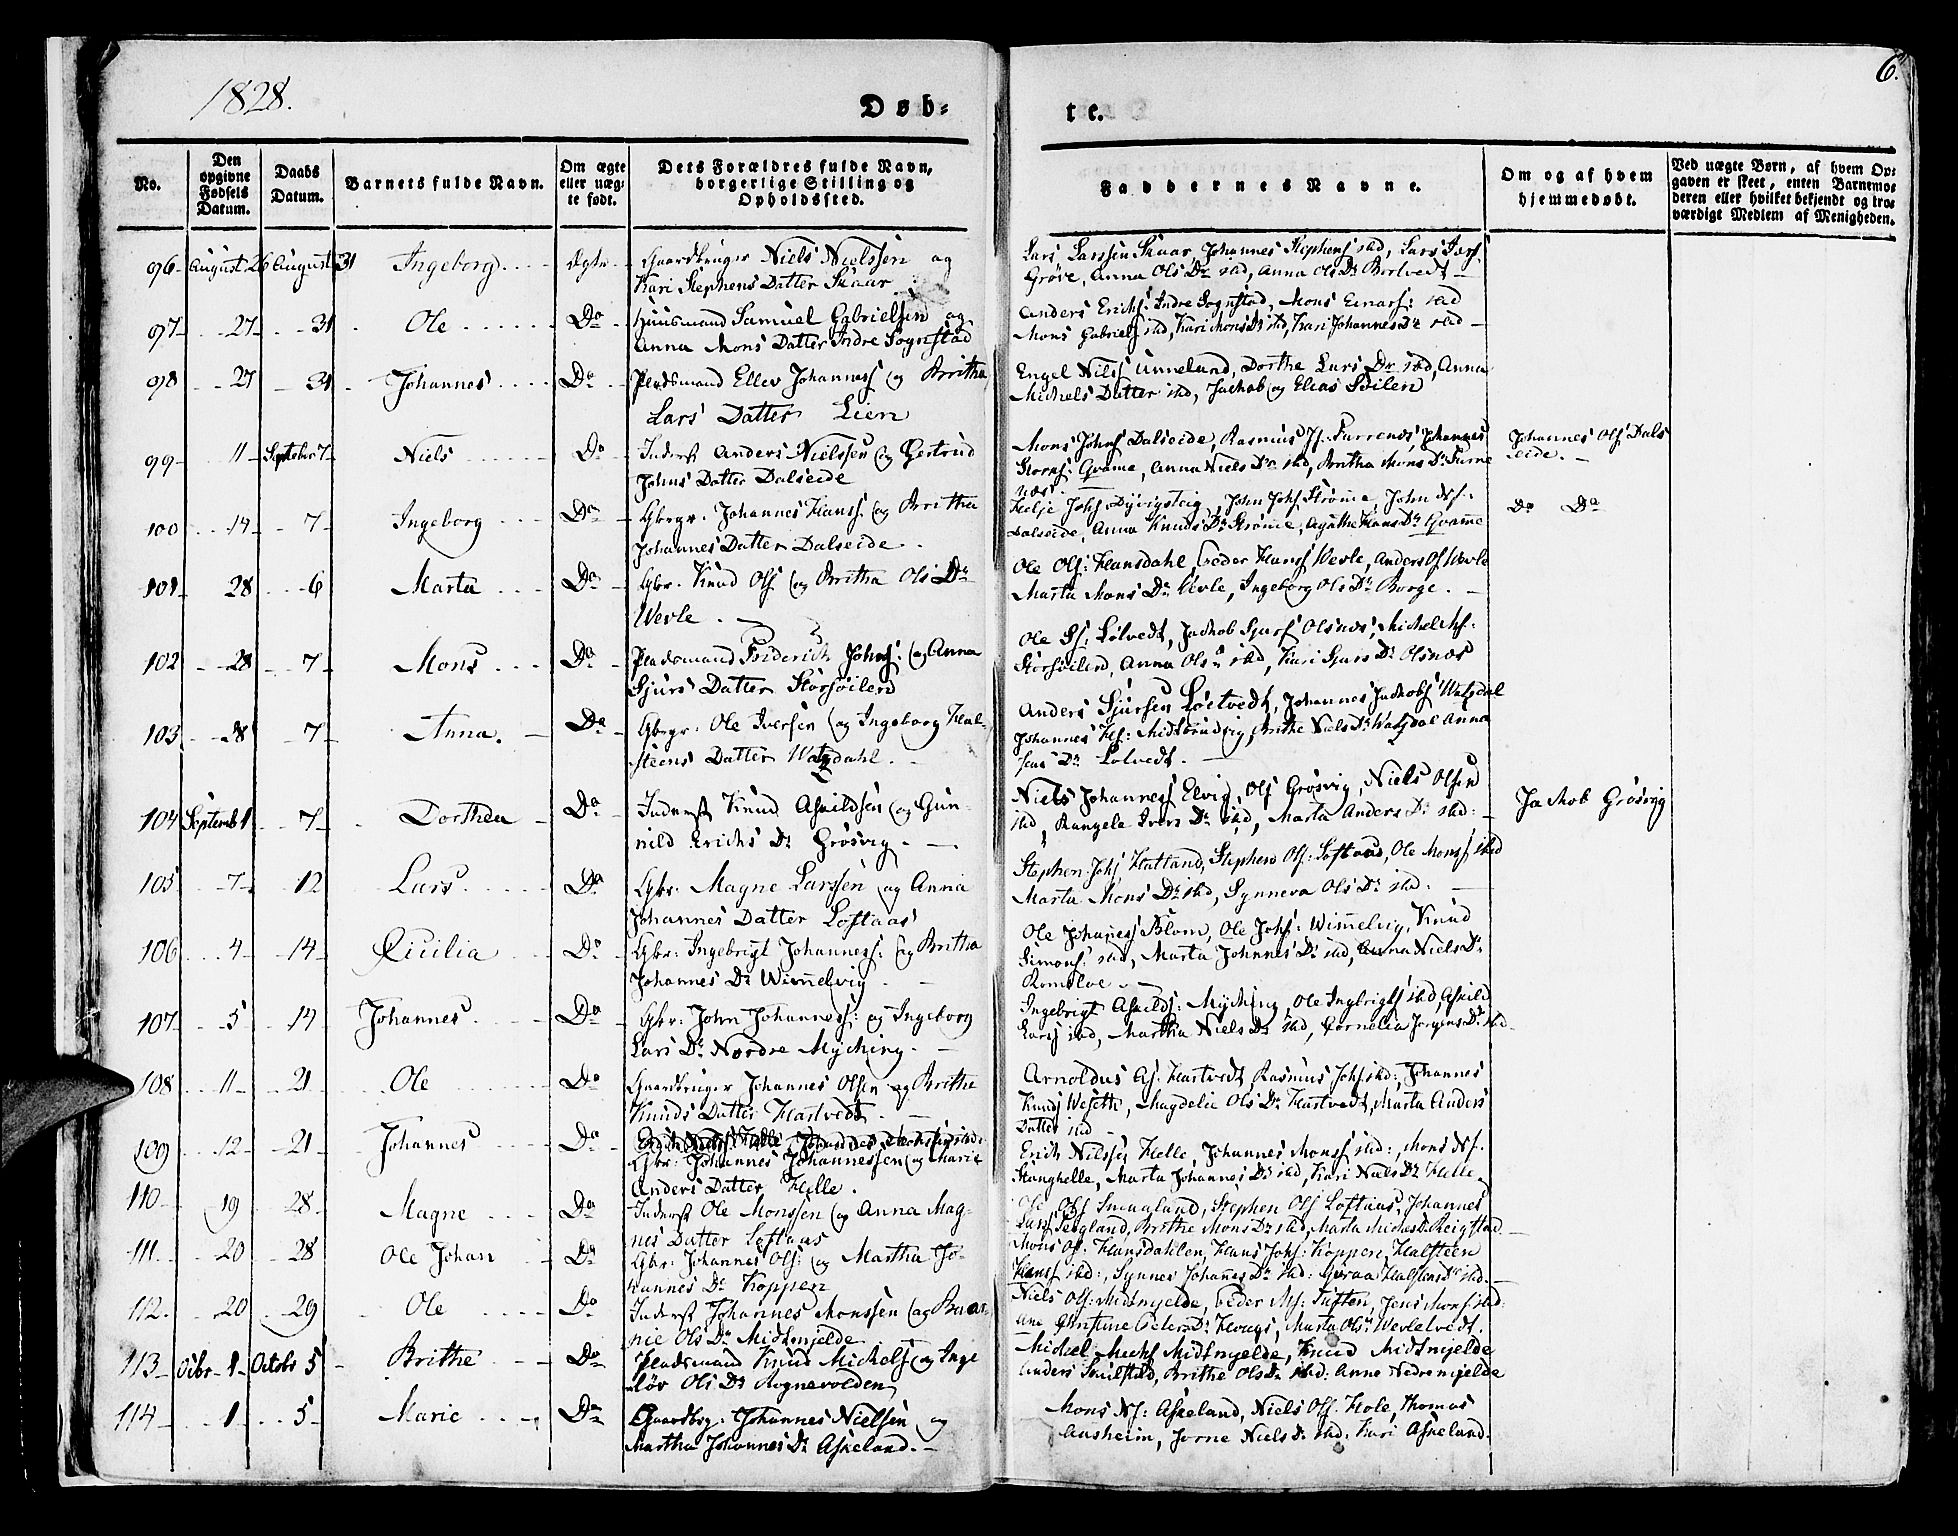 1828.
Døb-
te.
6.
No.
Den opgivne Fødsels Datum.
Daabs Datum.
Barnets fulde Navn.
Om ægte eller uægte født.
Dets Forældres fulde Navn, borgerlige Stilling og Opholdssted.
Faddernes Navne.
Om og af hvem hjemmedøbt.
Ved uægte Børn, af hvem Opgaven er skeet, enten Barnemoderen eller hvilket bekjendt og troværdigt Medlem af Menigheden.
96 August 26 August 31 Ingeborg Ægte Gaardbruger Niels Nielssen og
Kari Stephens Datter Skaar
Lars Larssen Skaar, Johannes Stephens sted, Lars Lars:
Gröve, Anna Ols Dr sted, Anna Ols Dr Bortvedt
97 27 31 Ole Do Huusmand Samuel Gabrielsen og
Anna Mons Datter Indre Sognstad
Anders Erichs: Indre Sognstad, Mons Einars: sted
Mons Gabriels sted, Kari Mons Dr sted, Kari Johannes Dr sted
98 27 31 Johannes Do Pladsmand Ellev Johanness og Britha
Lars Datter Lien
Engel Nilss Unneland, Dorthe Lars Dr sted, Anna
Michels Datter sted, Jackob og Elias Söilen
99 11 Septebr 7 Niels Do Inderst Anders Nielssen og Gertrud
Johns Datter Dalseide
Mons Johns Dalseide, Rasmus Js. Furrenes, Johannes
Gvame, Anna Niels Dr sted, Britha Mons Dr Furne
næs
Johannes Ols Dals
eide.
100 14 7 Ingeborg Do Gbrgr. Johannes Hans: og Britha
Johannes Datter Dalseide
Helje Johs Dyvigsteig, John Johs Strömme, John
Dalseide, Anna Knuds Dr Ströme, Agathe Hans Dr Gvame
Do Do
101 28 6 Marta Do Gbr. Knud Ols og Britha Ols Dr
Wevle
Ole Ols: Hansdahl, Peder Hans Wevle, Anders Ols Wevle
Marta Mons Dr Wevle, Ingeborg Ols Dr Borge.
102 28 7 Mons Do Pladsmand Friderich Johns: og Anna
Sjurs Datter Storsöilen
Ole Lölvedt, Jackob Sjurs Olsnæs, Michel
Storsöilen, Anna Ols Dr sted, Kari Sjurs Dr Olsnæs
103 28 7 Anna. Do Gbrgr: Ole Iversen og Ingeborg Hal-
steens Datter Watzdahl
Anders Sjursen Löltvedt, Johannes Jackobs Watzdal
Johannes Hs: Midtbrudvig, Brithe Niels Dr Watzdal Anna
Dr Lölvedt.
104 Septembr 1 7 Dorthea Do Inderst Knud Askildsen og Gun-
nild Erichs Dr Grösvig.
Niels Johanness Elvig, Grösvig, Niels Olsen
sted, Rangele Ivers Dr sted, Marta Anders Dr sted:
Jackob Grösvig
105 7 12 Lars Do Gbr: Magne Larssen og Anna
Johannes Datter Loftaas
Stephen Johs Hatland, Stephen Ols: Loftaas, Ole Mons sted
Marta Mons Dr sted, Synneva Ols Dr sted.
106 4 14 Cicilia Do Gbr: Ingebrigt Johanness: og Britha
Johannes Dr Wimelvig
Ole Johanness Blom, Ole Johs: Wimelvig, Knud
Simons: sted, Marta Johnnes Dr sted, Anna Niels Dr
Romslve
107 5 14 Johannes Do Gbr: John Johanness: og Ingeborg
Lars Dr Nordre Myching.
Ingebrigt Askilds: Myching, Ole Ingbrigts sted, Askild
Lars sted, Martha Niels Dr sted, Cornelia Jorgens Dr sted
108 11 21 Ole Do Gaardbruger Johannes Olsen og Brithe
Knuds Datter Hartvedt
Arnoldus As. Hartvedt, Rasmus Johs sted:, Johannes
Knuds Weseth, Magdelie Ols Dr Hartvedt, Marta Anders
Datter sted
109 12 21 Johannes Do
Gbr: Johannes Johannessen og Marie
Anders Datter Helle.
Erich Nilssen Helle, Johannes Mons sted:, Mons Ns.
Stanghelle, Marta Johannes Dr sted, Kari Niels Dr Helle
110 19 28 Magne Do Inderst Ole Monssen og Anna Mag-
nes Datter Loftaas
Ols Smaaland, Stephen Ols Loftaas, Johannes
Lars Skogland, Brithe Mons Dr sted, Marta Michels Dr Reigstad
111 20 28 Ole Johan Do Gbr: Johannes Ols: og Martha Jo-
hannes Dr Koppen
Mons Os. Hansdahlen, Hans Johs: Koppen, Halsteen
Hans sted:, Synnes Johanes Dr sted: Guraa Halstens Dr sted.
112. 20 29 Ole Do Inderst Johannes Monssen og Baar-
nie Ols Dr Midtmjelde
Niels Ols: Midtmjelde, Peder Ms: Tuften, Jens Mons sted:
Christine Peters Dr Haugs, Marta Ols Dr Wevletvedt.
113 Octbr 1 Octobr 5 Brithe Do Pladsmand Knud Michels og Inge
Ols Dr Rognevolden
Mickel Midtmjelde, Knud Midtmjelde
Anders Smilstad, Brithe Ols Dr sted: Anne Nedremjelde
114 1 5 Marie Do Gaardbrg: Johannes Nielsen og
Martha Johannes Dr Askeland.
Mons Ns: Askeland, Niels Ols Hole, Thomas
Ausheim, Jorne Niels Dr sted, Kari Askeland.